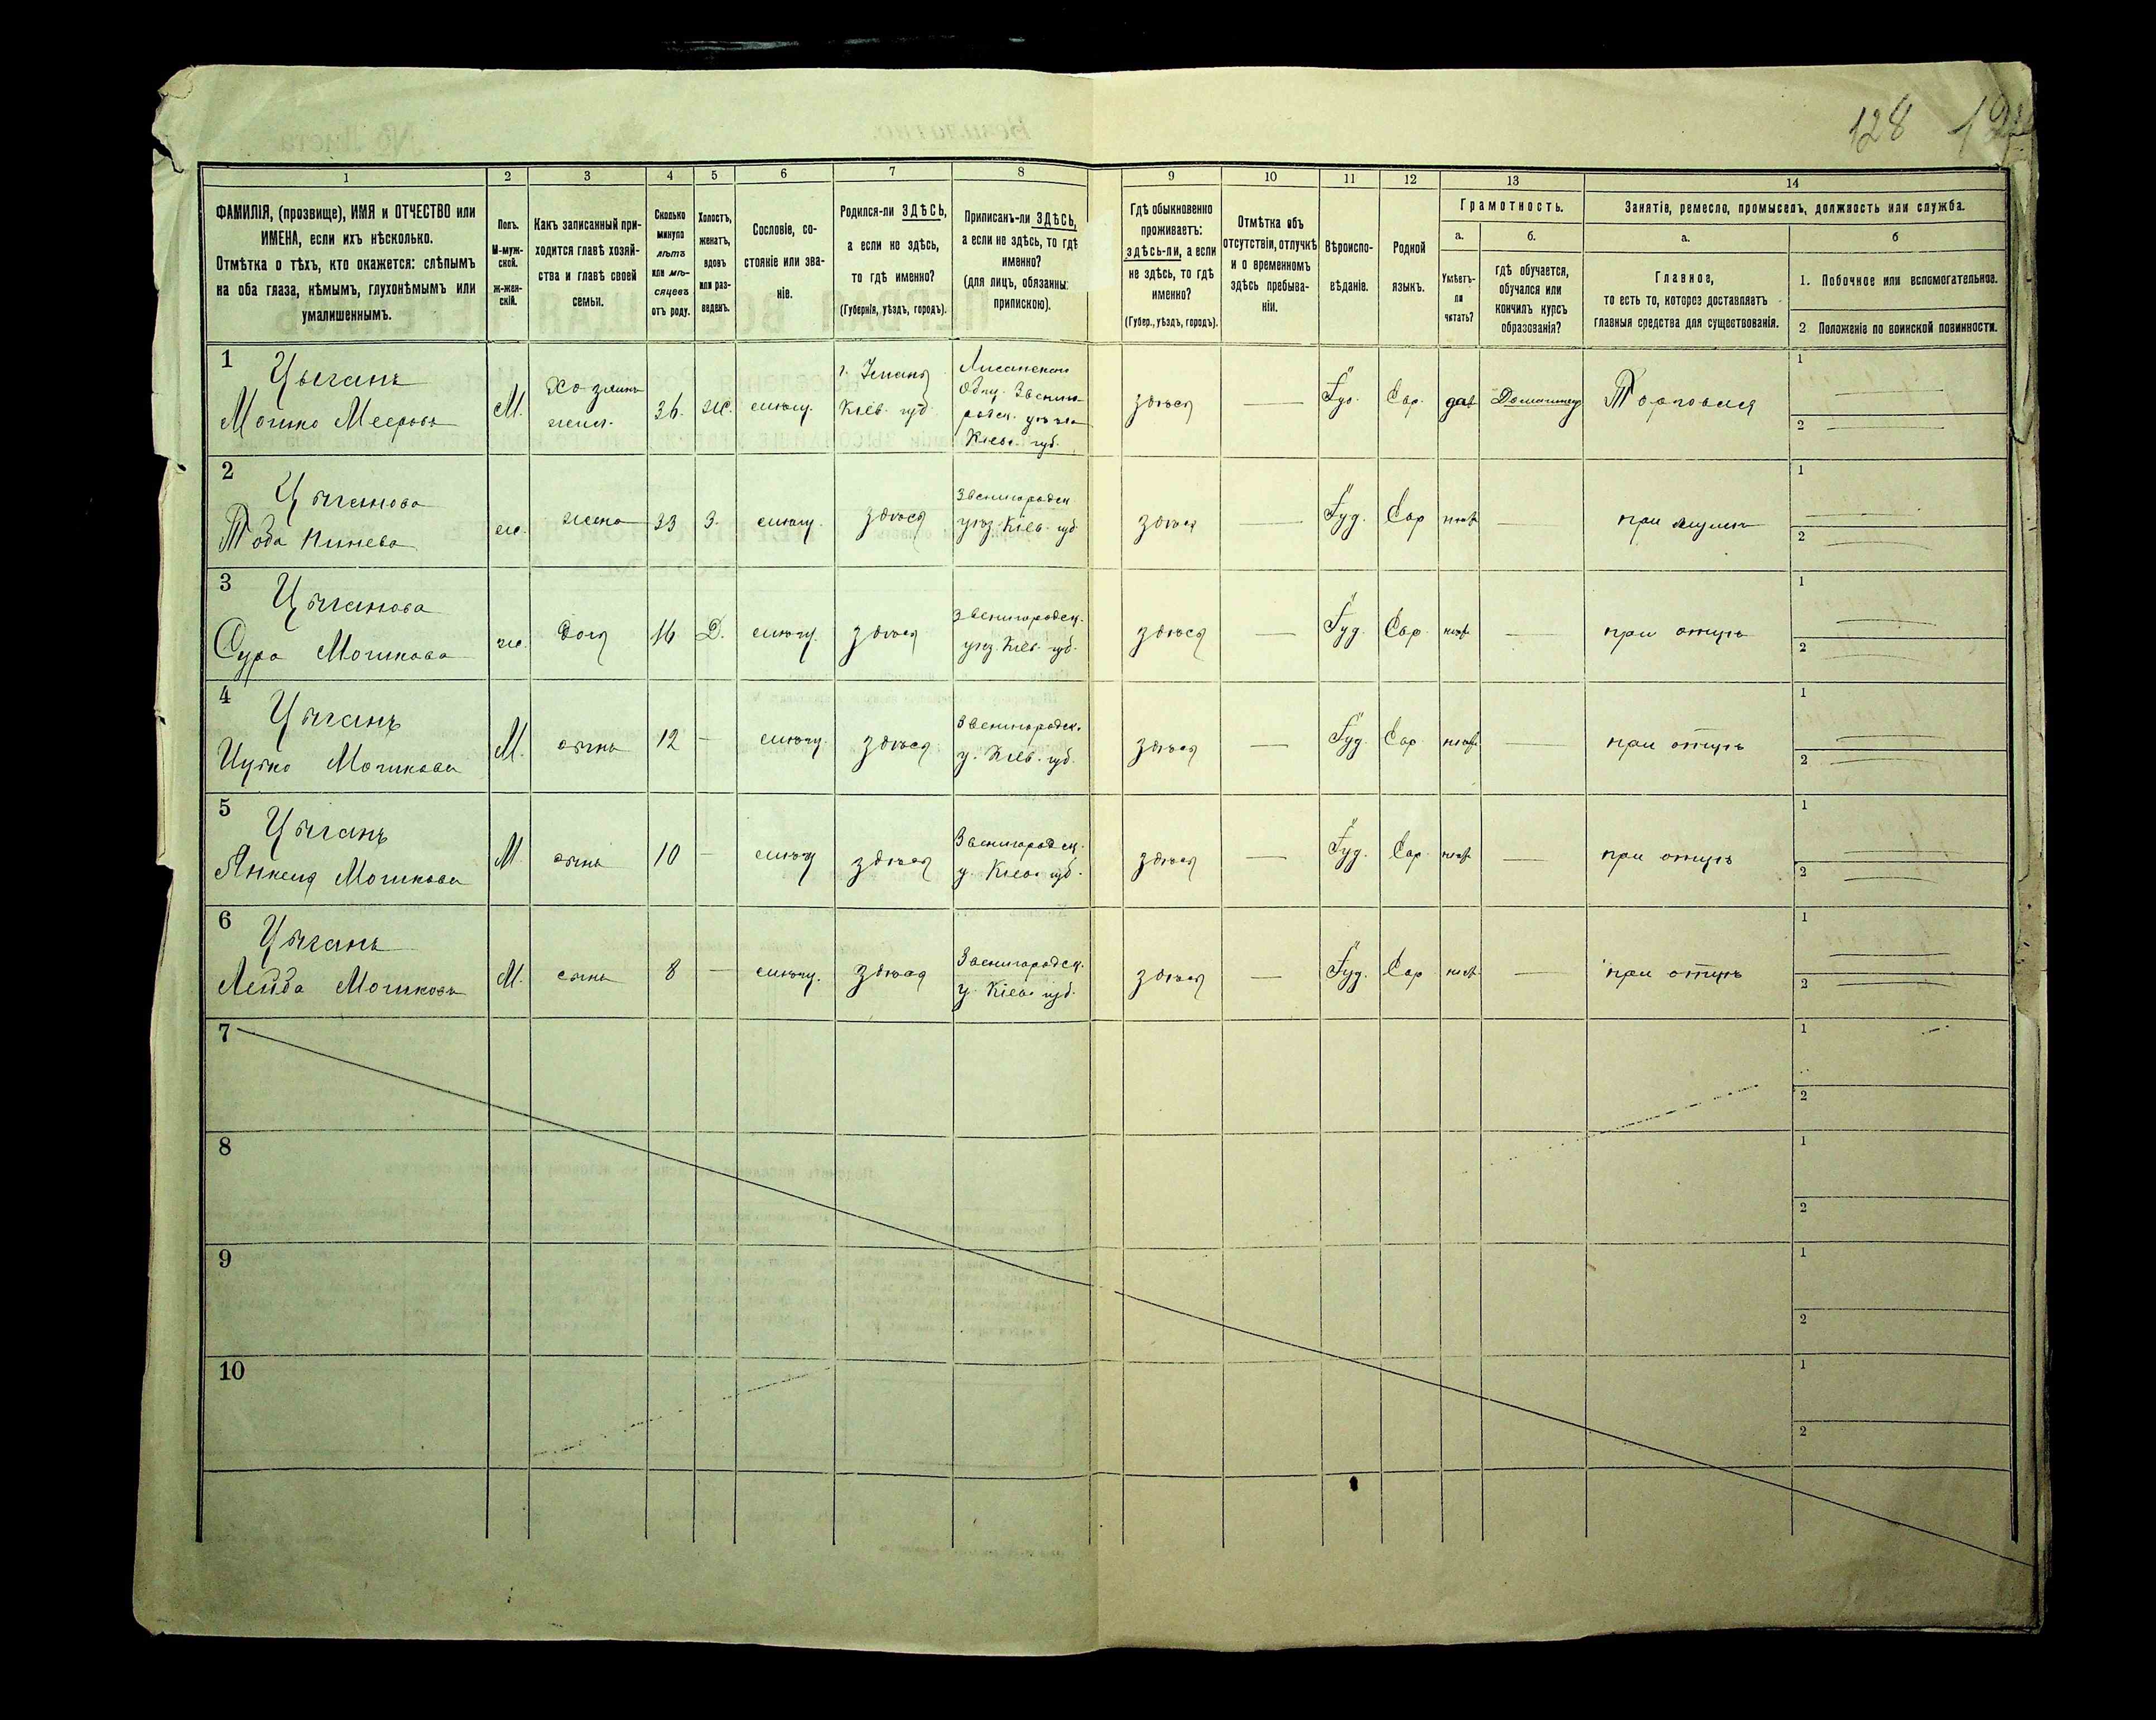 128
1
2
3
4
5
6
7
8
9
10
11
12
13
14
ФАМИЛІЯ, (прозвище), ИМЯ и ОТЧЕСТВО или
ИМЕНА, если ихъ нѣсколько.
Отмѣтка о тѣхъ, кто окажется: слѣпымъ
на оба глаза, нѣмымъ, глухонѣмымъ или
умалишеннымъ.
Полъ.
М-муж-
ской.
ж-жен-
скій.
Какъ записанный при-
ходится главѣ хозяй-
ства и главѣ своей
семьи.
Сколько
минуло
лѣтъ
или мѣ-
сяцевъ
отъ роду.
Холостъ,
женатъ,
вдовъ
или раз-
веденъ.
Сословіе, со-
стояніе или зва-
ніе.
Родился-ли ЗДѢСЬ,
а если не здѣсь,
то гдѣ именно?
(Губернія, уѣздъ, городъ).
Приписанъ-ли ЗДѢСЬ,
а если не здѣсь, то гдѣ
именно?
(для лицъ, обязанны:
припискою).
Гдѣ обыкновенно
проживаетъ:
здѣсь-ли, а если
не здѣсь, то гдѣ
именно?
(Губер., уѣздъ, городъ).
Отмѣтка объ
отсутствіи, отлучкѣ
и о временномъ
здѣсь пребыва-
ніи.
Вѣроиспо-
вѣданіе.
Родной
языкъ.
Грамотность.
а.
б.
Умѣетъ-
ли
читать?
гдѣ обучается,
обучался или
кончилъ курсъ
образованія?
Занятіе, ремесло, промыселъ, должность или служба.
а.
б
Главное,
то есть то, которое доставляетъ
главныя средства для существованія.
1. Побочное или вспомогательное.
2 Положеніе по воинской повинности.
1
Цыганъ
Мошко Мееровъ
М.
Хозяинъ
36.
же.
г. Умань
Кіев. губ.
Звениго-
родск. уѣзда
Кіев. губ.
здѣсь
Іуд.
Евр.
да
Домашнее
Торговля
1
2
2
Цыганова
ж.
жена
33
З.
здѣсь
Звенигородск
уѣз. Кіев. губ.
здѣсь
Іуд.
Евр
нѣтъ
при мужѣ
1
2
3
Цыганова
Сура Мошкова
ж.
дочь
16
Д.
здѣсь
Звенигородск.
уѣз. Кіев. губ.
здѣсь
Іуд.
Евр
нѣтъ
при отцѣ
1
2
4
Цыганъ
Ицко Мошковъ
М.
сынъ
12
здѣсь
Звенигородск.
у. Кіев. губ.
здѣсь
Іуд.
Евр.
нѣтъ
при отцѣ
1
2
5
Цыганъ
Янкель Мошковъ
М
сынъ
10
здѣсь
Звенигородск.
у. Кіев. губ.
здѣсь
Іуд.
Евр.
нѣтъ
при отцѣ
1
2
6
Цыганъ
Лейба Мошковъ
М.
сынъ
8
здѣсь
Звенигородск.
у. Кіев. губ.
здѣсь
Іуд.
Евр
нѣтъ
при отцѣ
1
2
7
1
2
8
1
2
9
1
2
10
1
2